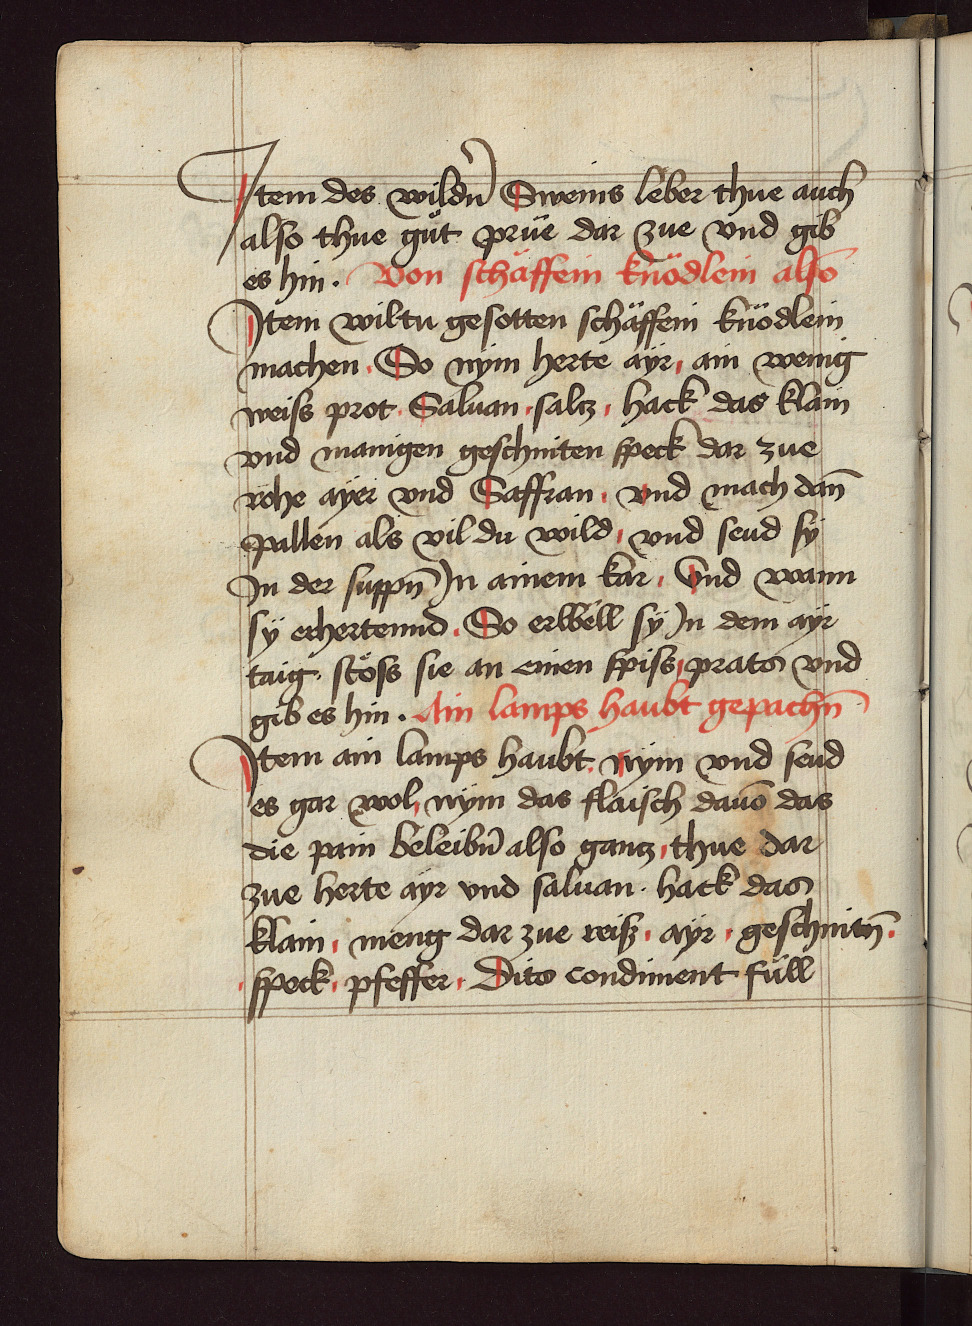 Item des wildn̄ Sweins leber thue auch
also thue gůt prüe dar zue vnd gib
es hin · Von schäffein knödlein also
Item wiltu gesotten schäffein knödlein
machen · So nÿm herte aÿr, ain wenig
weiß prot · Saluan · saltz, hack das klain
vnd manigen geschniten speck dar zue
rohe aÿer vnd Saffran, vnd mach dan̄
pallen als vil du wild, vnd seud sÿ
In der suppn̄ In ainem kar, Vnd wann
sÿ erhertennd · So erwell sÿ In dem aÿr
taig · stöss sie an einen spiss, prats vnd
gib es hin · Ain lamps haubt gepachn̄
Item ain lamps haubt, nÿm vnd seud
es gar wol, nÿm das flaisch dauō das
die pain beleibn̄ also gantz, thue dar
zue herte aÿr vnd saluan · hack das
klain, meng dar zue reiß, aÿr, geschnitn̄ ·
speck, pfeffer, Dito condiment füll